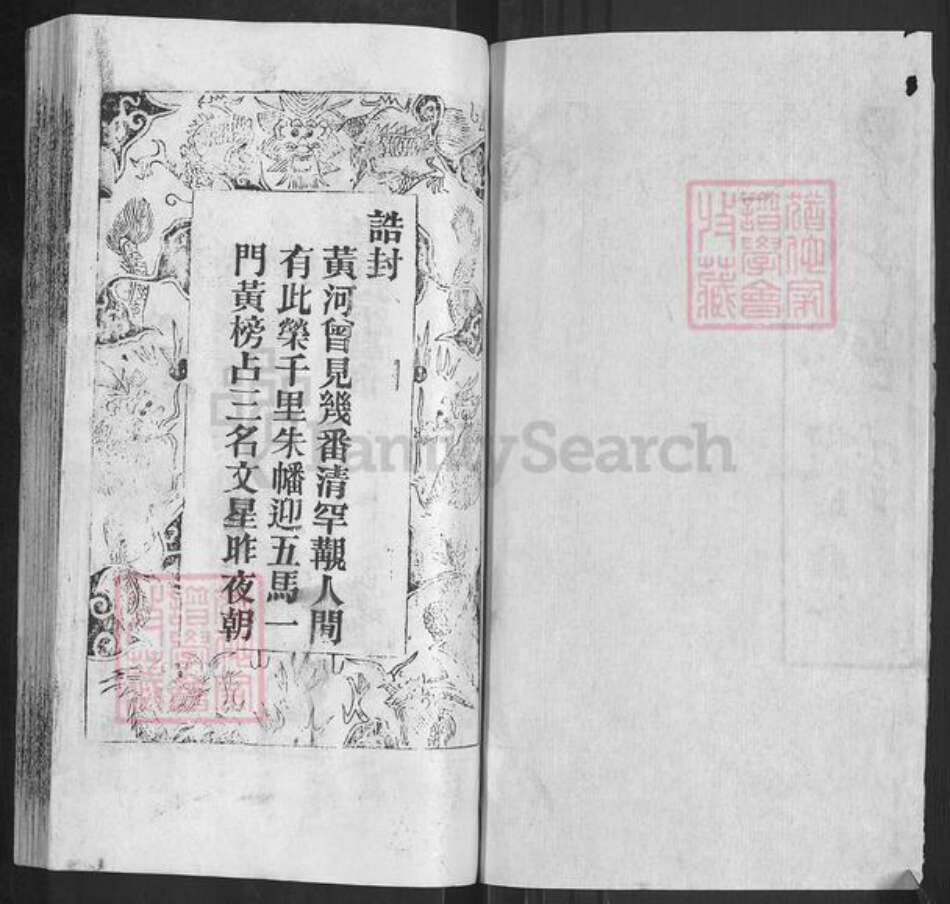 誥封
黃河曾見幾番清罕觀人間
有此榮千里朱幡迎五馬一
門黃榜占三名文星昨夜朝
猶他家
譜學會
收藏
猶他家
譜學會
收藏
FamilySearch